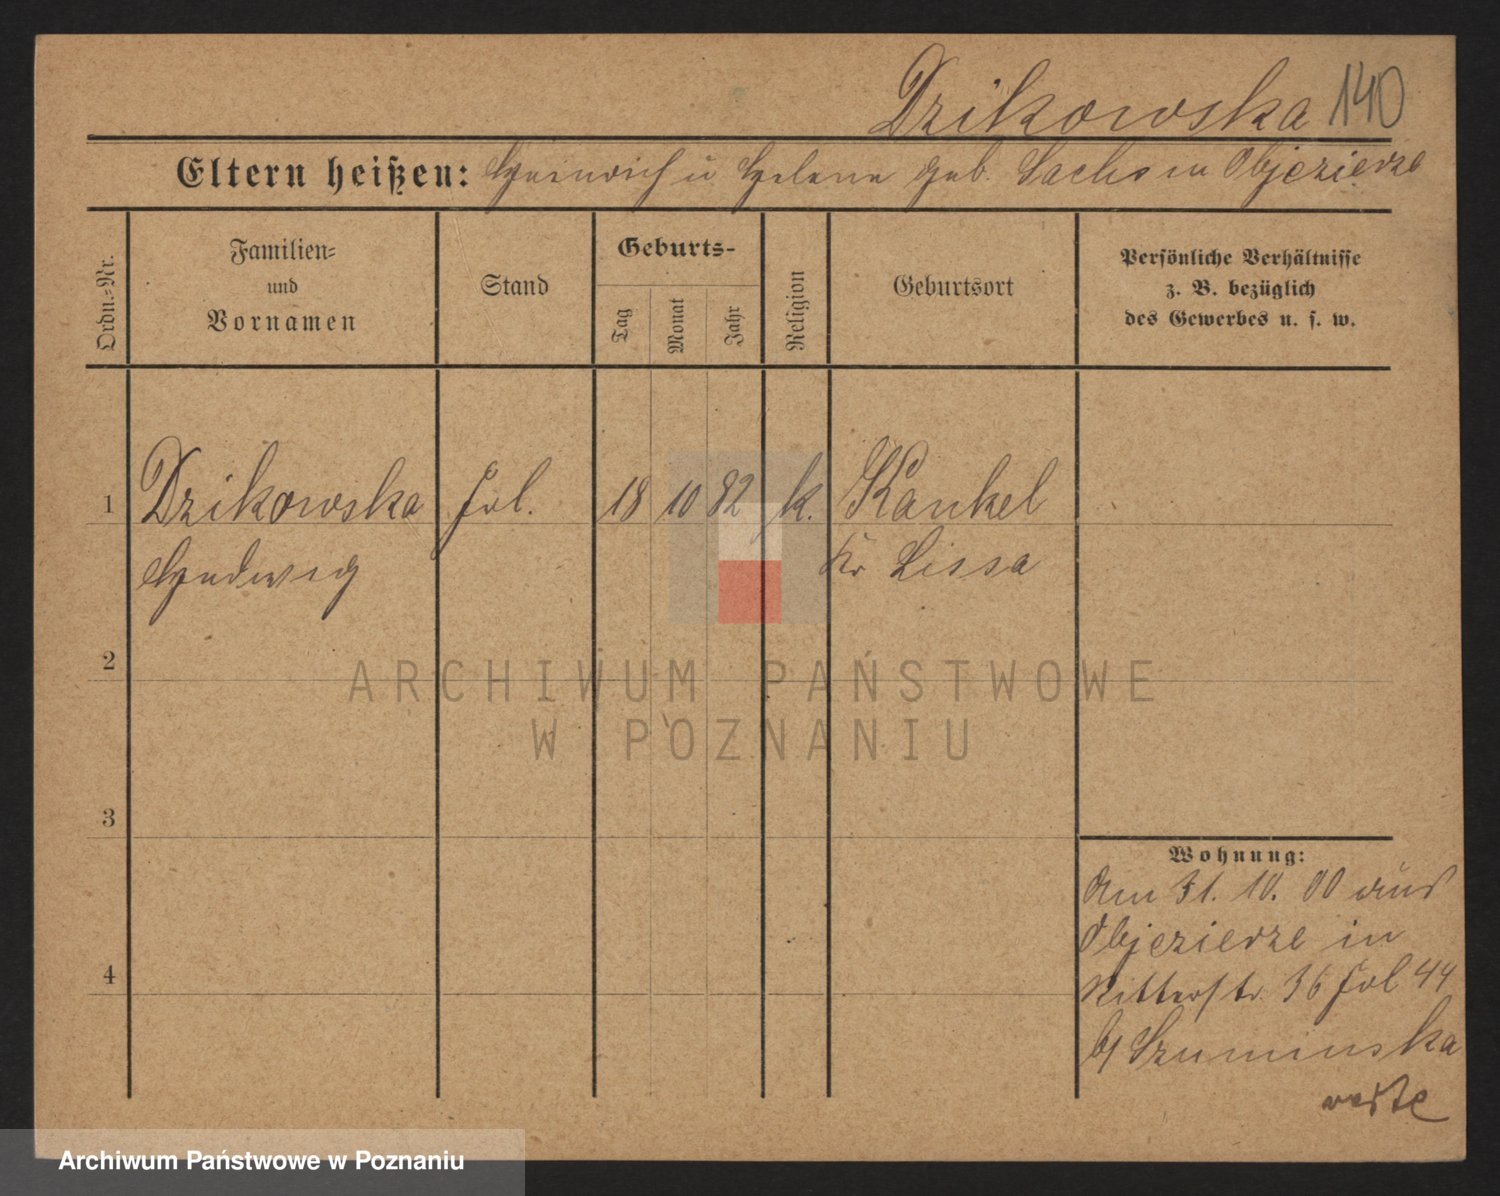 Dzikowska 140
Eltern heißen: Heinrich u Helene geb. Sachs in Objezierze
Ordn.-Nr.
Familien-
und
Vornamen
Stand
Geburts-
Tag
Monat
Jahr
Religion
Geburtsort
Persönliche Verhältnisse
z. B. bezüglich
des Gewerbes u. s. w.
1 Dzikowska Frl. 18 10 82 k. Kankel
Hedwig Kr Lissa
2
3
4
Wohnung:
Am 31. 10. 00 aus
Objezierze in
Ritterstr. 36 Frl 44
b/ Szuminska
ARCHIWUM PAŃSTWOWE
W POZNANIU
Archiwum Państwowe w Poznaniu